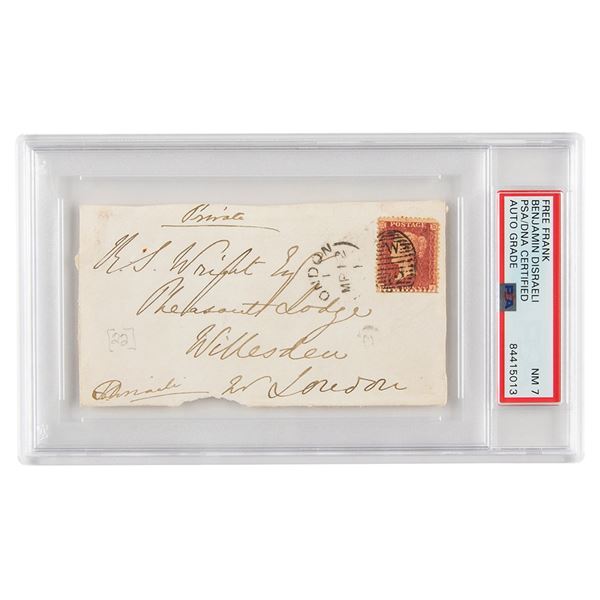 Private
R. S. Wright Esq
Pheasant Lodge
Willesden
Disraeli nr London
POSTAGE
LONDON
MR 12
W
FREE FRANK
BENJAMIN DISRAELI
PSA/DNA CERTIFIED
AUTO GRADE
PSA
NM 7
84415013